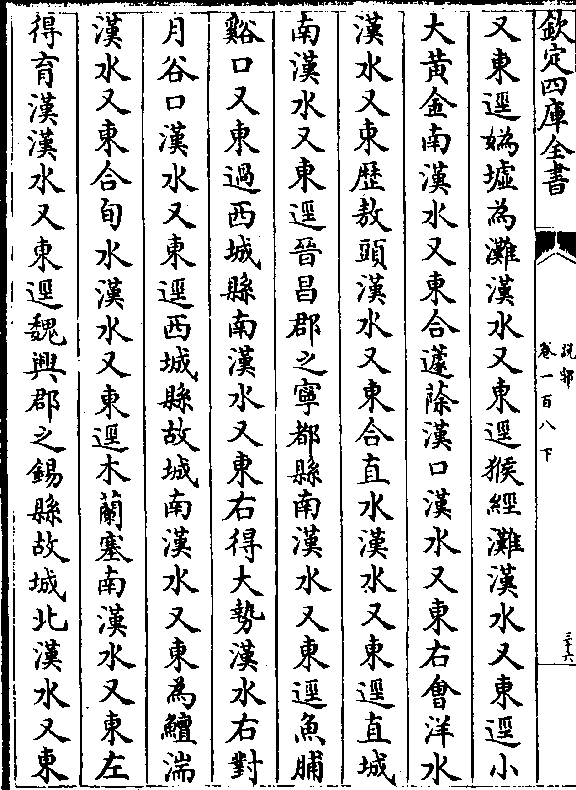 欽定四庫全書
說郛
卷一百八下
三十六
又東逕媯墟為灘漢水又東逕猴經灘漢水又東逕小
大黃金南漢水又東合蘧蒢漢口漢水又東右會洋水
漢水又東歷敖頭漢水又東合直水漢水又東逕直城
南漢水又東逕晉昌郡之寧都縣南漢水又東逕魚脯
谿口又東過西城縣南漢水又東右得大勢漢水右對
月谷口漢水又東逕西城縣故城南漢水又東為鱣湍
漢水又東合旬水漢水又東逕木蘭塞南漢水又東左
得育漢漢水又東逕魏興郡之錫縣故城北漢水又東